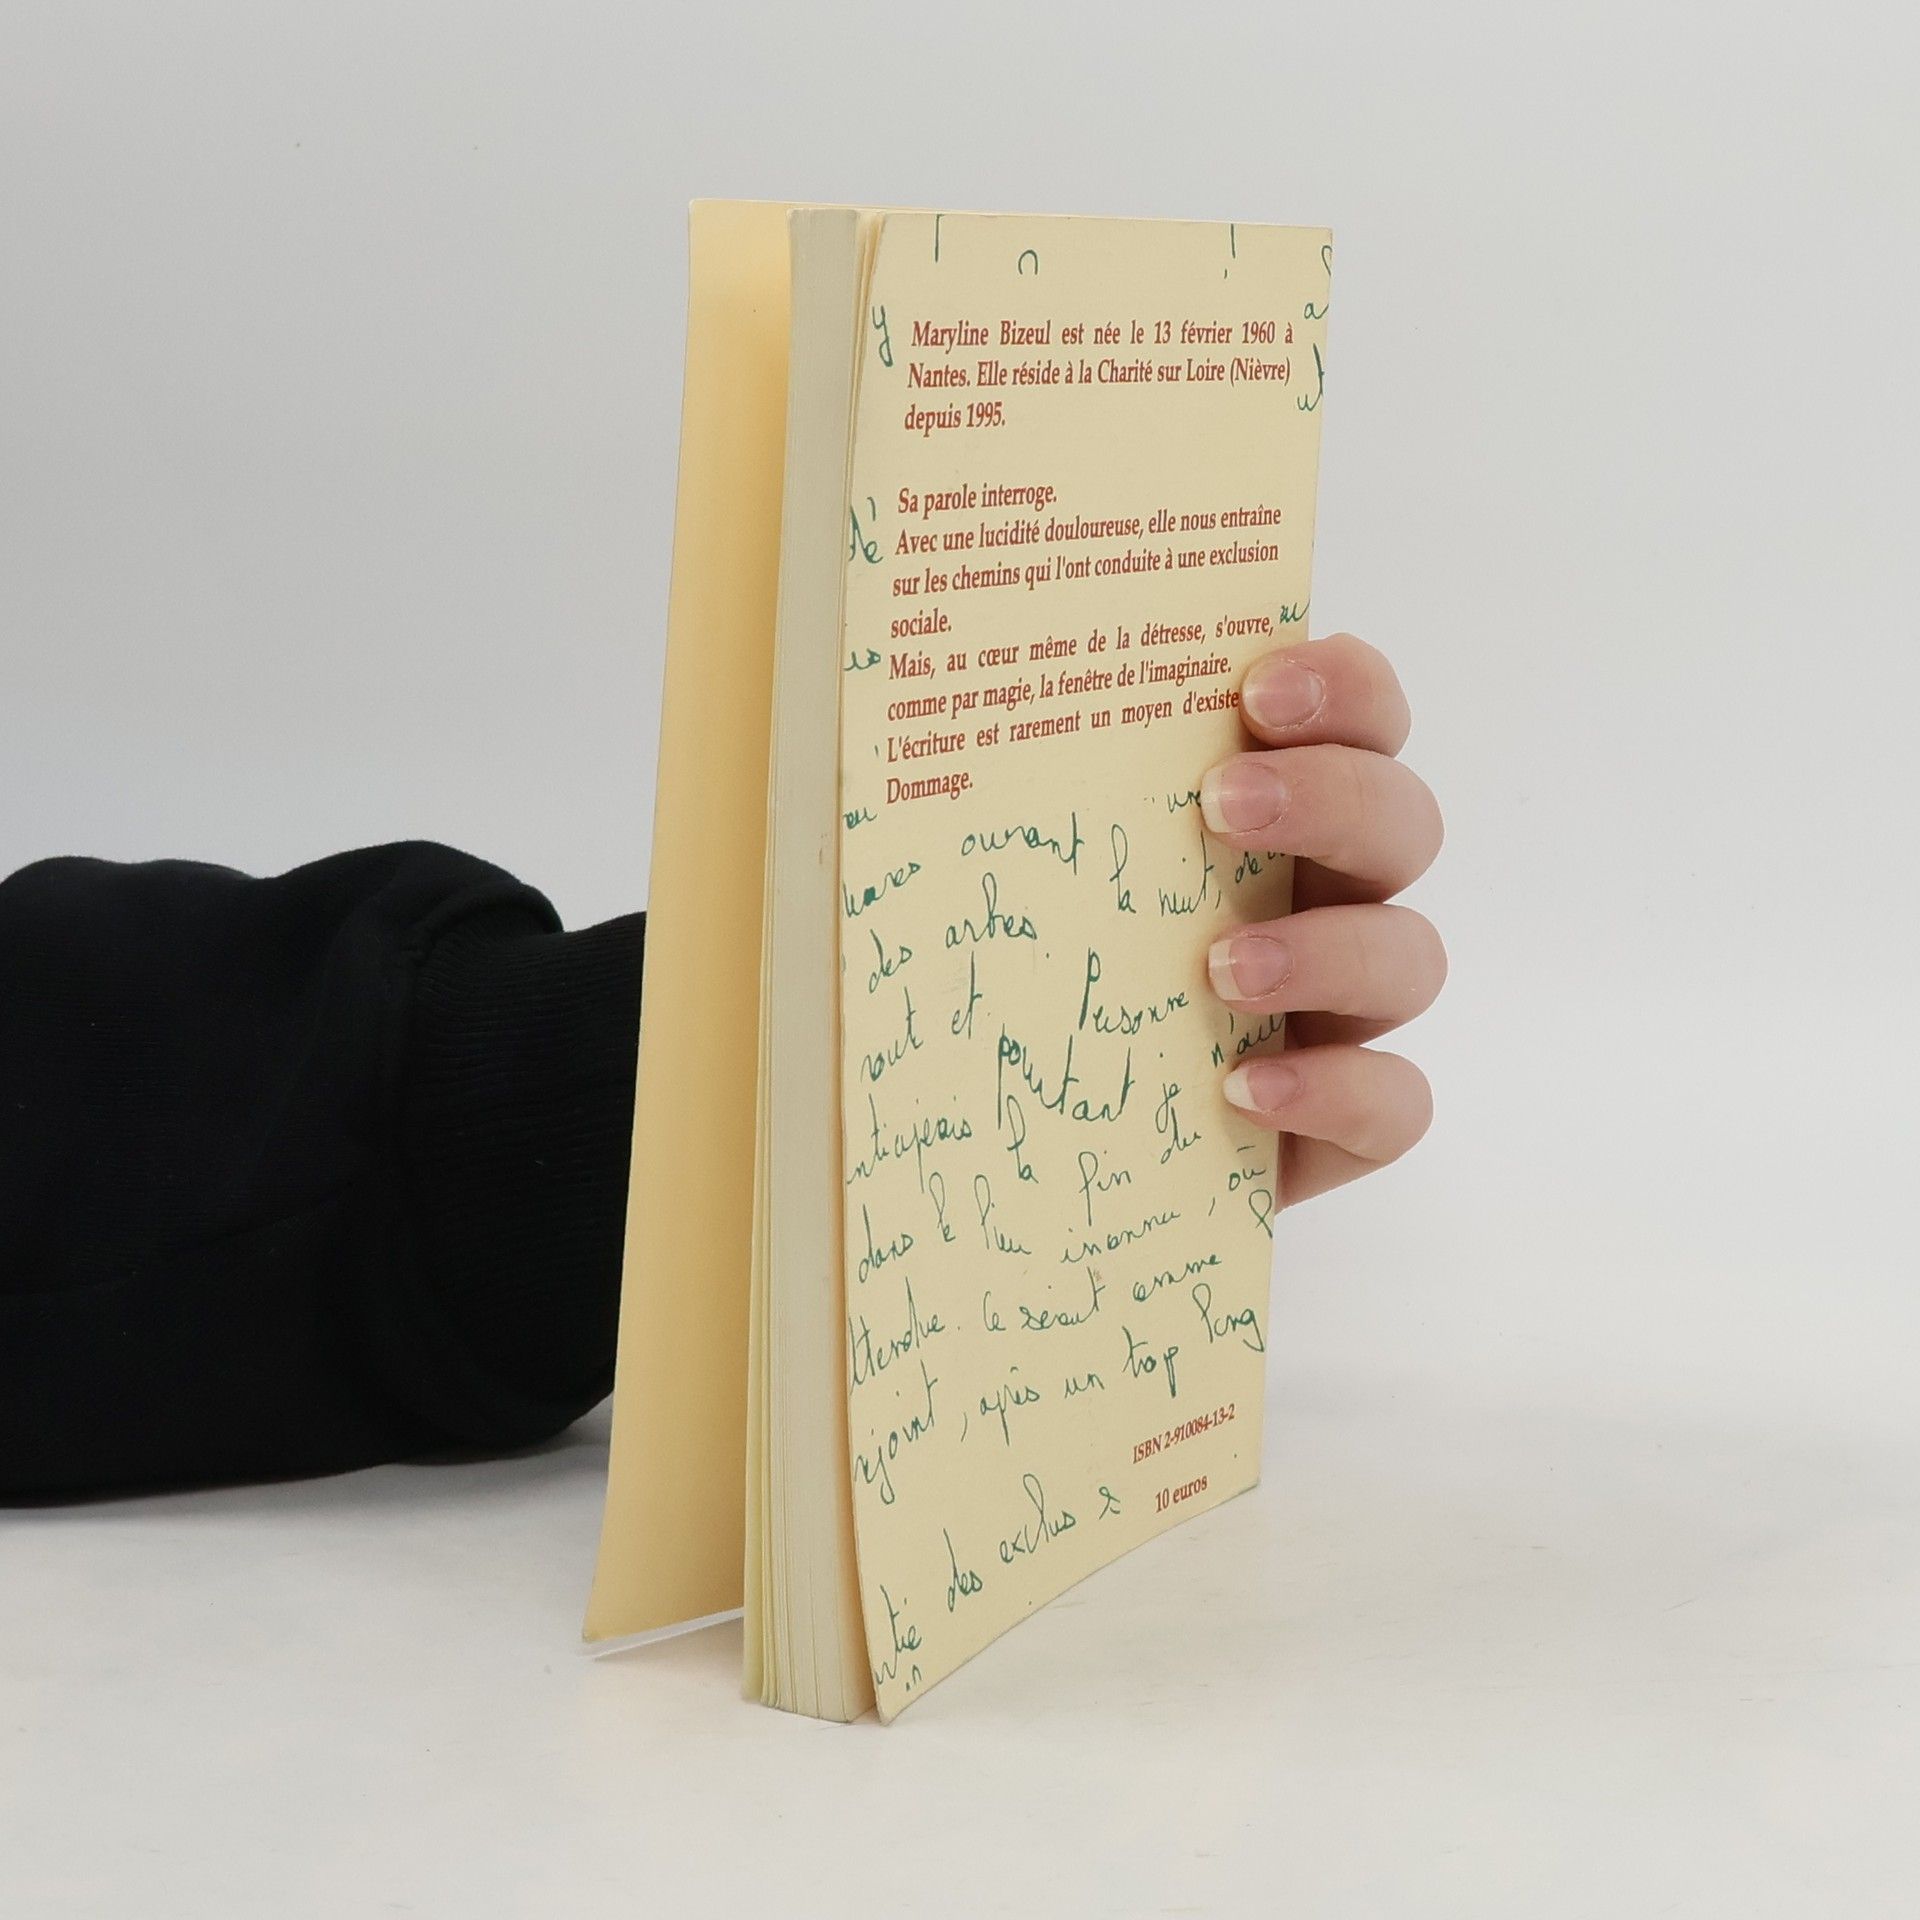 Maryline Bizeul est née le 13 février 1960 à
Nantes. Elle réside à la Charité sur Loire (Nièvre)
depuis 1995.
Sa parole interroge.
Avec une lucidité douloureuse, elle nous entraîne
sur les chemins qui l'ont conduite à une exclusion
sociale.
Mais, au cœur même de la détresse, s'ouvre,
comme par magie, la fenêtre de l'imaginaire.
L'écriture est rarement un moyen d'existe
Dommage.
ouvrant
des arbres la nuit, de
et Personne
pourtant je n'
dans le lieu la fin du
inconnu, où
Ce serait comme
après un trop long
des exclus
ISBN 2-910084-13-2
10 euros